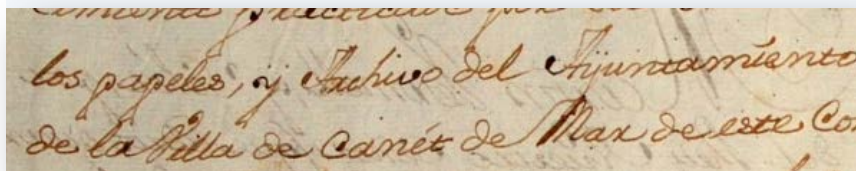 los papeles, y Archivo del Ayuntamiento
de la Villa de Canét de Mar de este Co